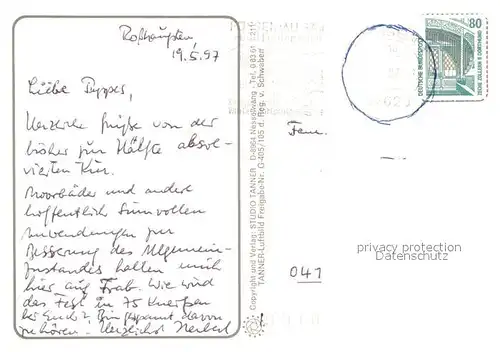 Roßhaupten,
19.5.97
Liebe Pyppes,
Herzliche Grüße von der
bisher zur Hälfte absol-
vierten Kur.
Moorbäder und andere
hoffentlich sinnvollen
Anwendungen zur
Besserung des Allgemein-
zustandes halten mich
hier auf Trab. Wie wird
das Fest in 75
bei Euch? Bin gespannt davon
zu hören. Herzlichst Herbert
Copyright und Verlag: STUDIO TANNER D-8964 Nesselwang · Tel.
TANNER-Luftbild Freigabe-Nr. G-405/105 d. Reg. v. Schwaben
Fam.
041
80
DEUTSCHE BUNDESPOST
ZECHE ZOLLERN II DORTMUND
privacy protection
Datenschutz